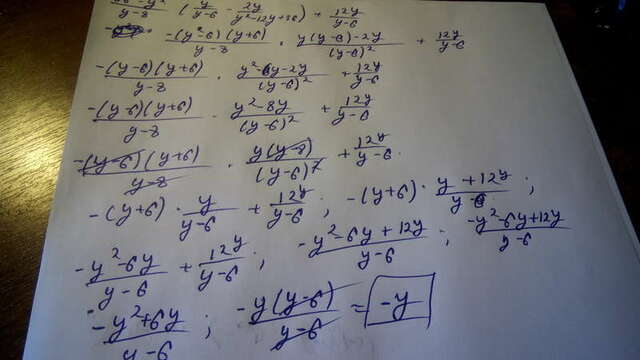 36-y²/y-8 (y/y-6 - 2y/y²-12y+36) + 12y/y-6
-(y-6)(y+6)/y-8 · y(y-6)-2y/(y-6)² + 12y/y-6
-(y-6)(y+6)/y-8 · y²-6y-2y/(y-6)² + 12y/y-6
-(y-6)(y+6)/y-8 · y²-8y/(y-6)² + 12y/y-6
-(y-6)(y+6)/y-8 · y(y-8)/(y-6)² + 12y/y-6
-(y+6) · y/y-6 + 12y/y-6 ; -(y+6) · y+12y/y-6 ;
-y²-6y/y-6 + 12y/y-6 ; -y²-6y+12y/y-6 ; -y²-6y+12y/y-6
-y²+6y/y-6 ; -y(y-6)/y-6 = -y